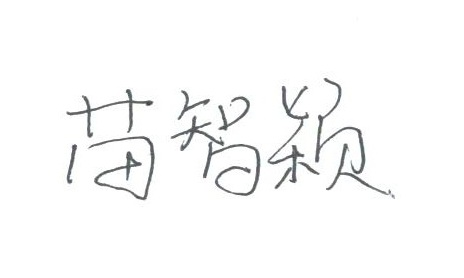 苗智颖